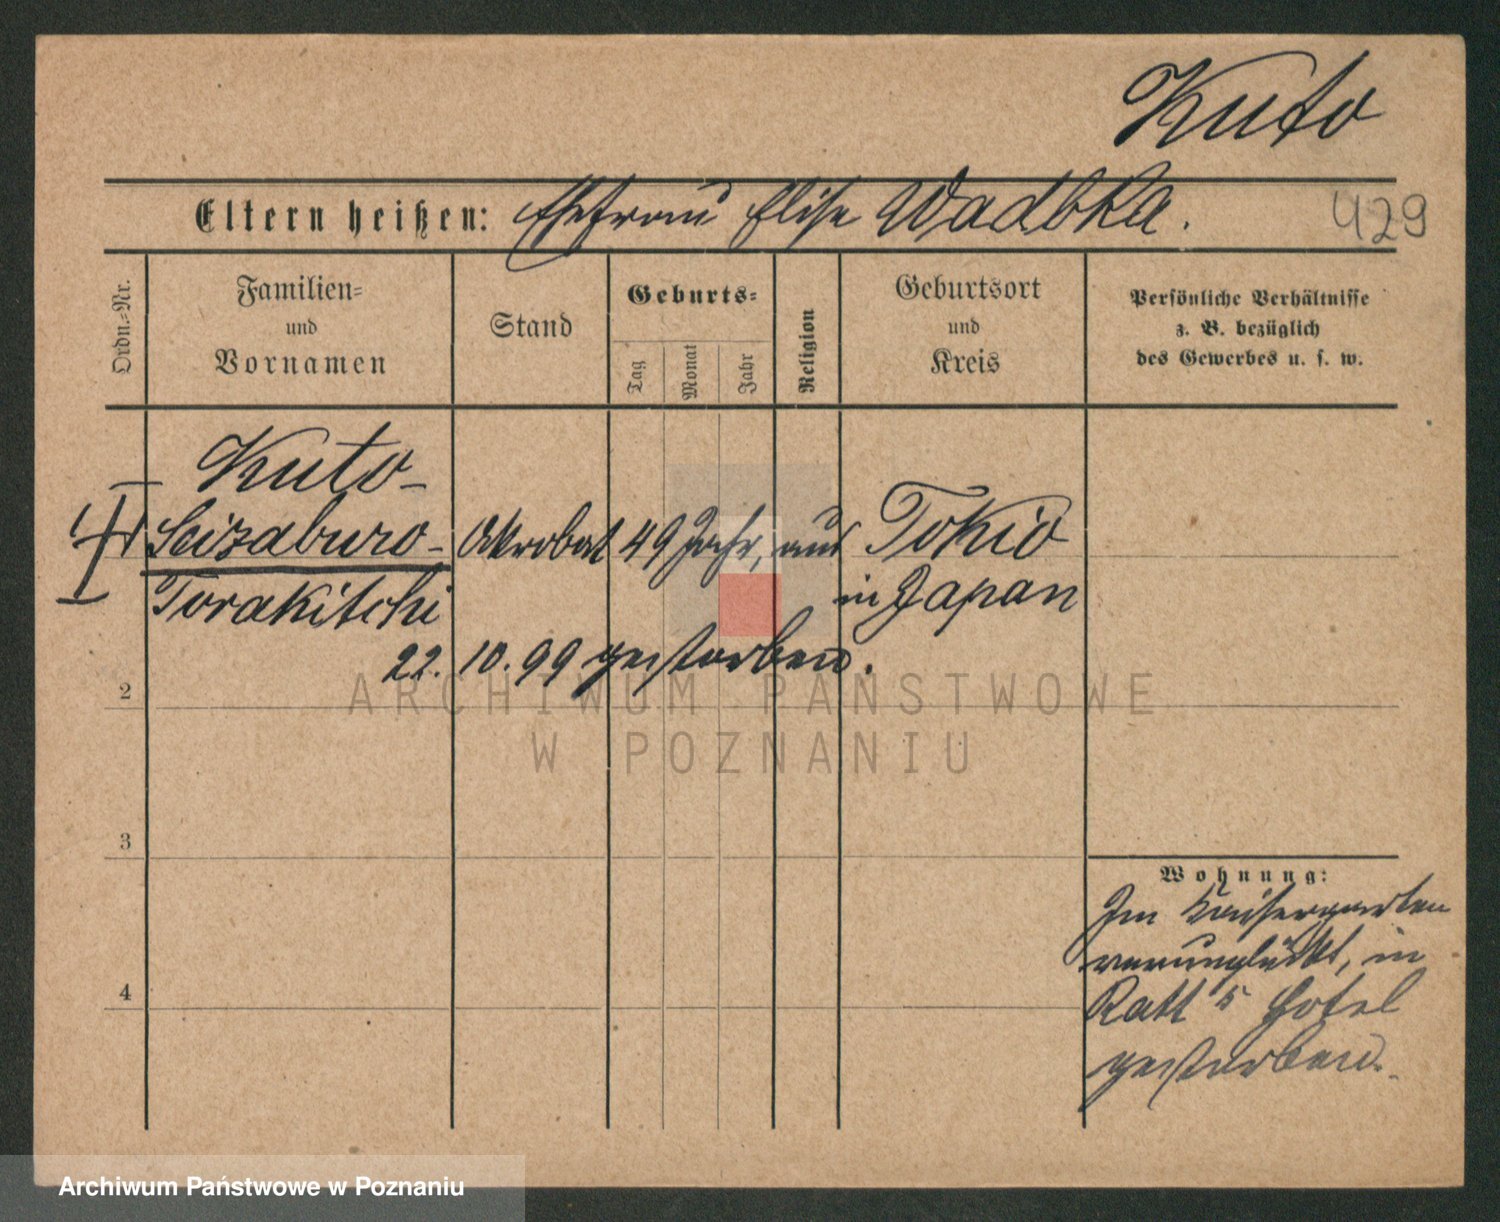 Kuto
Eltern heißen: Ehefrau Elise Wadbka.
429
Ordn.-Nr.
Familien-
und
Vornamen
Stand
Geburts-
Tag
Monat
Jahr
Religion
Geburtsort
und
Kreis
Persönliche Verhältnisse
z. B. bezüglich
des Gewerbes u. s. w.
Kuto-
Seizaburo- Akrobat 49 Jahr, aus Tokio
Torakitchi in Japan
22. 10. 99 gestorben.
2
3
4
Wohnung:
Im Kaisergarten
verunglückt, in
Ratt's Hotel
gestorben.
ARCHIWUM PAŃSTWOWE
W POZNANIU
Archiwum Państwowe w Poznaniu